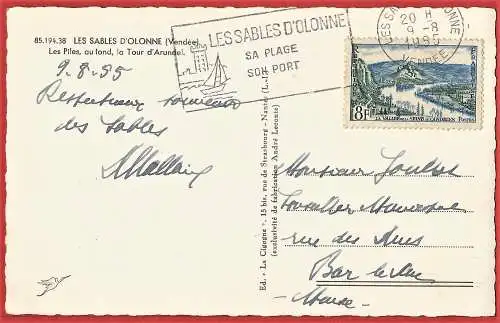 85.194.38 LES SABLES D'OLONNE (Vendée)
Les Piles, au fond, la Tour d'Arundel.
9.8.55
Respectueux souvenir
des Sables
LES SABLES D'OLONNE
SA PLAGE
SON PORT
LES SABLES D'OLONNE
20 H
9-8
1955
VENDÉE
8F
LA VALLEE DE LA SEINE AUX ANDELYS Postes
Ed. « La Cigogne », 15 bis, rue de Strasbourg - Nantes
(exclusivité de fabrication André Leconte)
Monsieur
Conseiller Municipal
rue des
Bar le Duc
Meuse